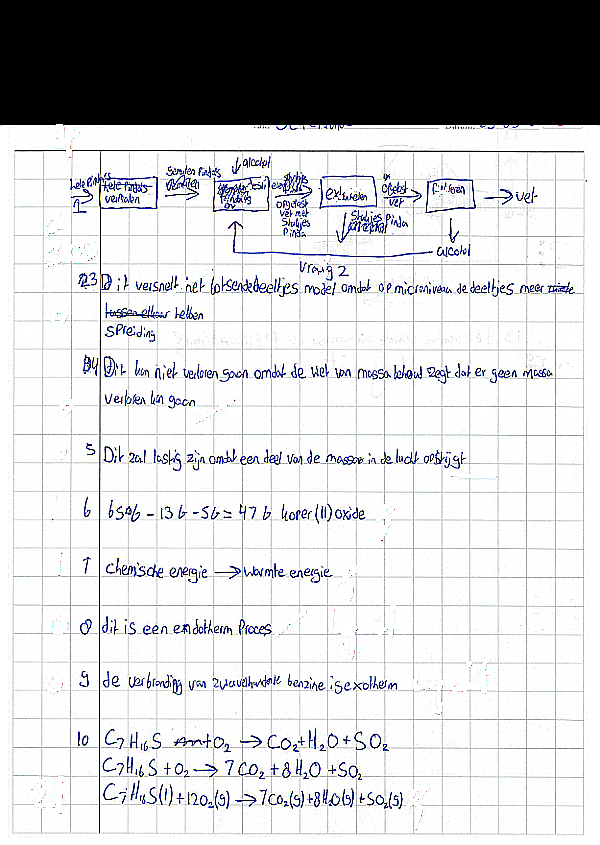 hele Pinda's
1
hele Pinda's
vermalen
alcohol
opgelost
vet met
stukjes
Pinda
stukjes Pinda
vet
alcohol
Vraag 2
3 Dit versnelt het botsendedeeltjes model omdat op microniveau de deeltjes meer
tussen elkaar hebben
spreiding
4 Dit kan niet verloren gaan omdat de wet van massa behoud zegt dat er geen massa
verloren kan gaan
5 Dit zal lastig zijn omdat een deel van de massa in de lucht opstijgt
6 65g - 13 g - 5g = 47 g koper(II)oxide
7 chemische energie → warmte energie
8 dit is een endotherm Proces
9 de verbranding van zwavelhoudende benzine is exotherm
10 C7H16S + O2 → CO2 + H2O + SO2
C7H16S + O2 → 7CO2 + 8H2O + SO2
C7H16S(l) + 12O2(g) → 7CO2(g) + 8H2O(g) + SO2(g)